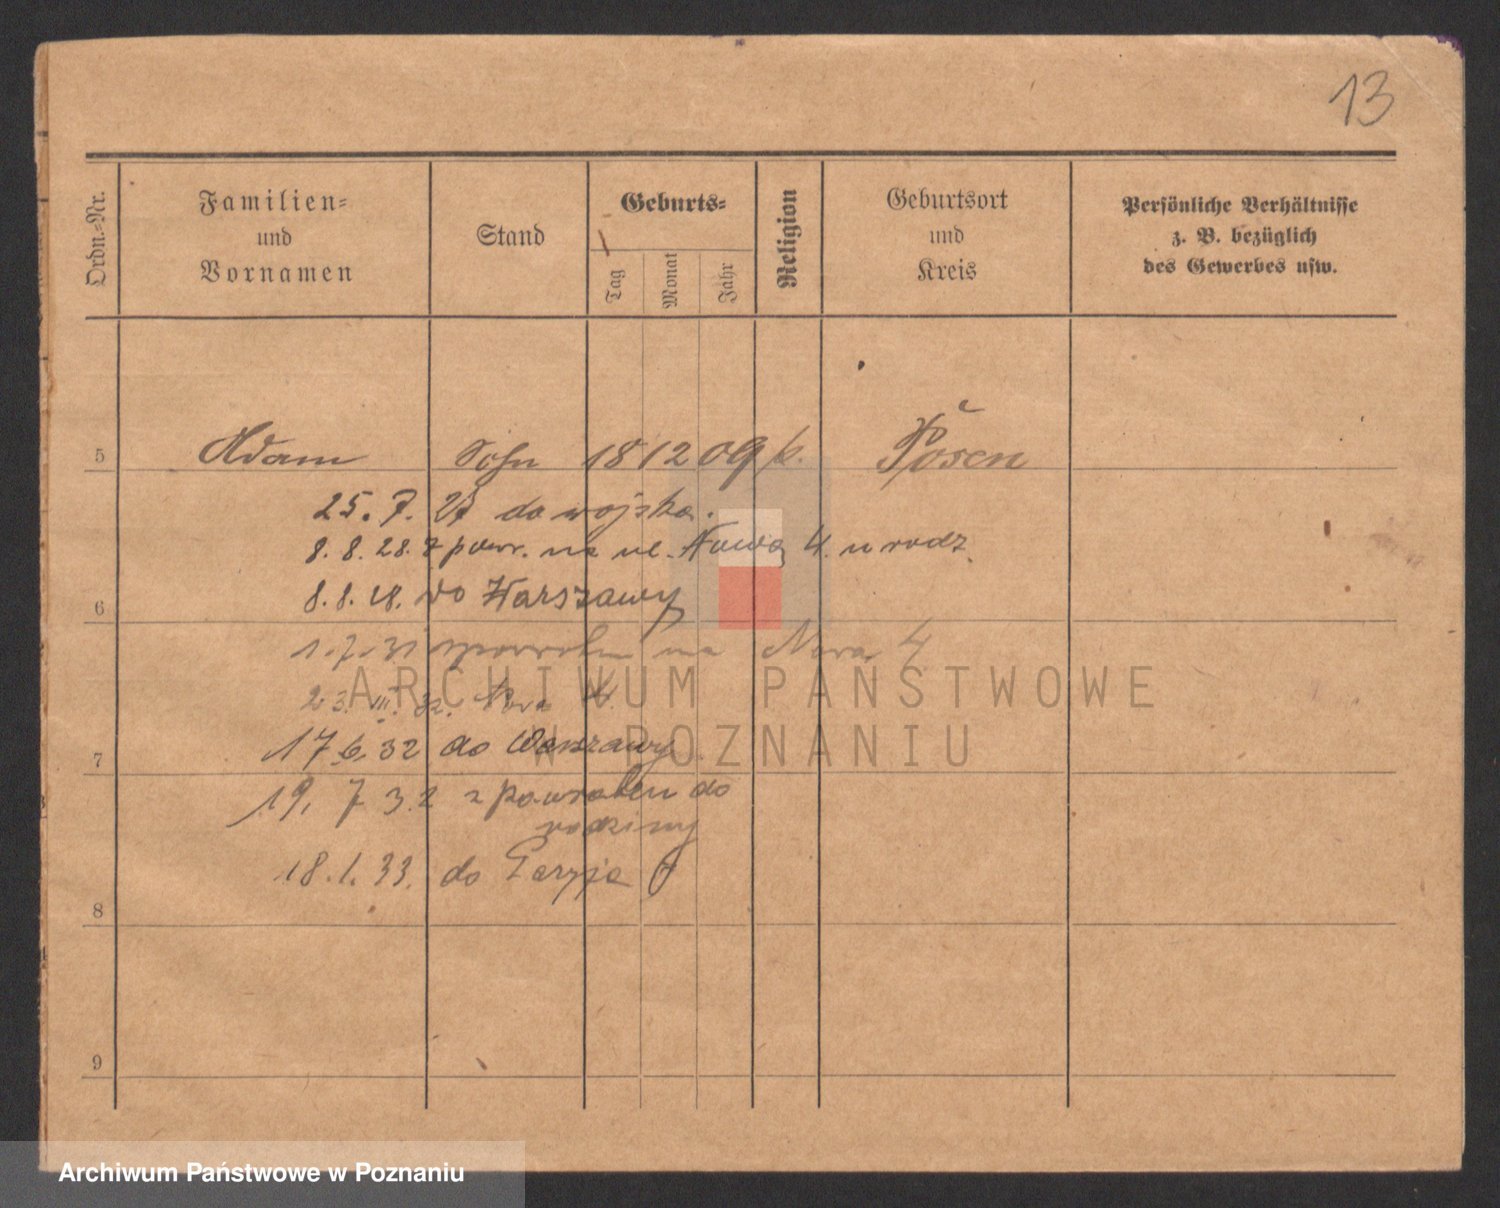 13
Ordn.-Nr.
Familien-
und
Vornamen
Stand
Geburts-
Tag
Monat
Jahr
Religion
Geburtsort
und
Kreis
Persönliche Verhältnisse
z. B. bezüglich
des Gewerbes usw.
5 Adam Sohn 18 12 09 k. Posen
25. 7. 27 do wojska.
8. 8. 28. z powr. na ul. Nowa 4. u rodz.
6 8. 8. 28. do Warszawy
1. 7. 31 na Nowa 4
23. III. 32. Nowa 4.
7 17 6. 32 do Warszawy
19. 7 32 z powrotem do
rodziny
18. 1. 33. do Paryża
8
9
ARCHIWUM PAŃSTWOWE
W POZNANIU
Archiwum Państwowe w Poznaniu